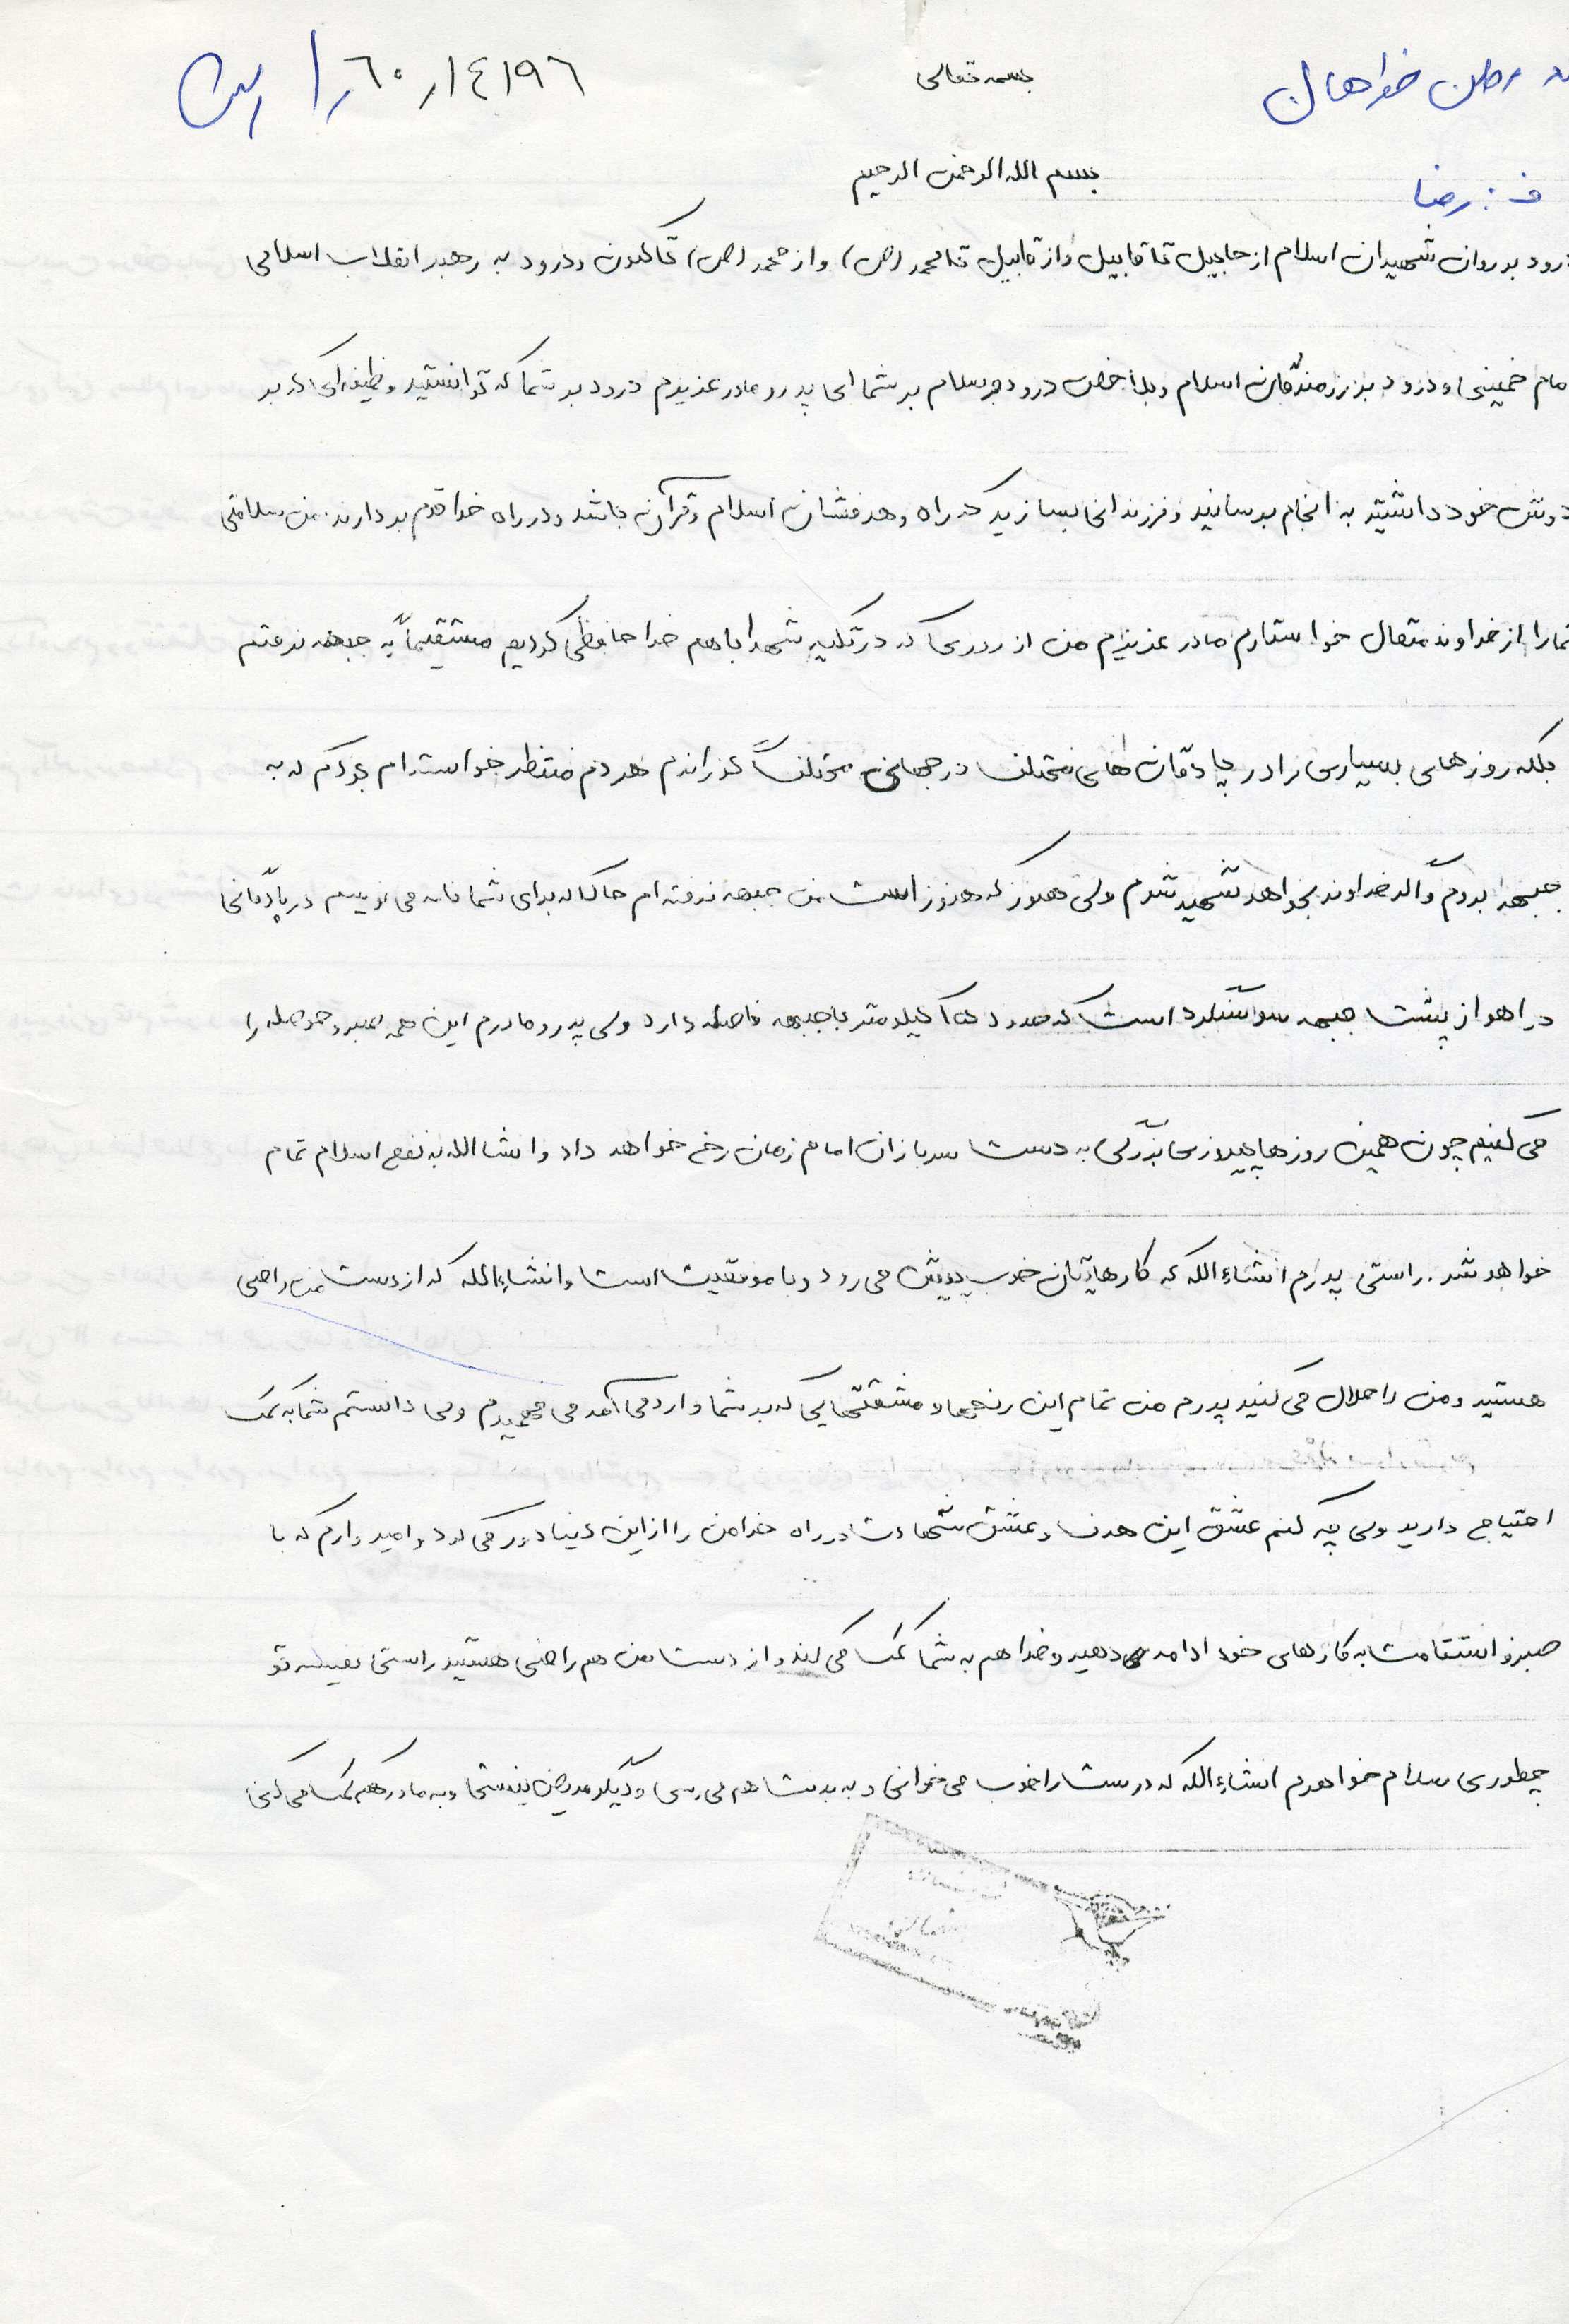 بسمه تعالی
خواهان
٦٠/١٤١٩٦
بسم الله الرحمن الرحیم
ف: رضا
درود بر روان شهیدان اسلام از هابیل تا قابیل و از قابیل تا محمد (ص) و از محمد (ص) تاکنون و درود به رهبر انقلاب اسلامی
امام خمینی و درود بر رزمندگان اسلام و بلأخص درود و سلام بر شما ای پدر و مادر عزیزم درود بر شما که توانستید وظیفه‌ای که بر
دوش خود داشتید به انجام برسانید و فرزندانی بسازید که راه و هدفشان اسلام و قرآن باشد و در راه خدا قدم بردارند. من سلامتی
شما را از خداوند متعال خواستارم مادر عزیزم من از روزی که در تکیه شهدا با هم خدا حافظی کردیم مستقیماً به جبهه نرفتم
بلکه روزهای بسیاری را در پادگان های مختلف در جهای مختلف گذراندم هر دم منتظر خواستدام بودم که به
جبهه بروم و اگر خداوند بخواهد شهید شوم ولی هنوز که هنوز است من جبهه نرفته ام حالا که برای شما نامه می نویسم در پادگانی
در اهواز پشت جبهه سوسنگرد است که حدود کیلومتر با جبهه فاصله دارد ولی پدر و مادرم این همه صبر و حوصله را
می کنیم چون همین روزها پیروزی بزرگی به دست سربازان امام زمان رخ خواهد داد و انشا الله به نفع اسلام تمام
خواهد شد. راستی پدرم انشاءالله که کارهایتان خوب پیش می رود و با موفقیت است و انشاءالله که از دست من راضی
هستید و من را حلال می کنید پدرم من تمام این رنجها و مشقتهایی که بر شما وارد می آمد می فهمیدم و می دانستم شما به کمک
احتیاج دارید ولی چه کنم عشق این هدف و عشق شهادت در راه خدا من را از این دنیا دور می کرد و امید وارم که با
صبر و استقامت به کارهای خود ادامه دهید و خدا هم به شما کمک می کند و از دست من هم راضی هستید راستی نفیسه تو
چطوری سلام خواهرم انشاءالله که درست را خوب می خوانی و به بدنت هم می رسی و دیگر مریض نیستی و به مادر هم کمک می کنی